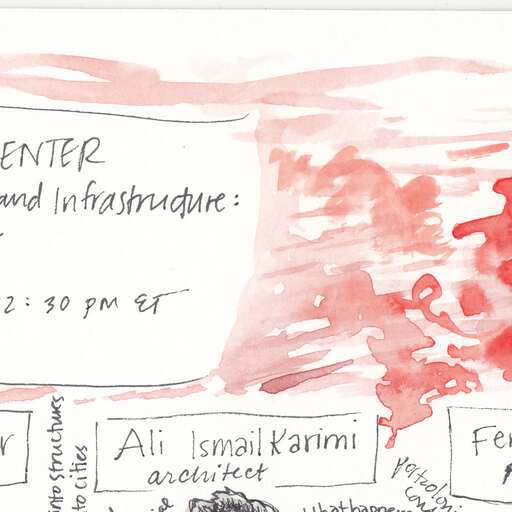 ENTER
and Infrastructure:
2:30 pm ET
into structures
to cities
r
Ali Ismail Karimi
architect
Fer